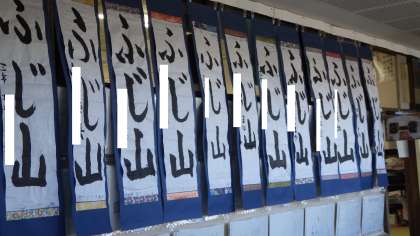 ふじ山
ふじ山
ふじ山
ふじ山
ふじ山
ふじ山
ふじ山
ふじ山
ふじ山
ふじ山
ふじ山
ふじ山